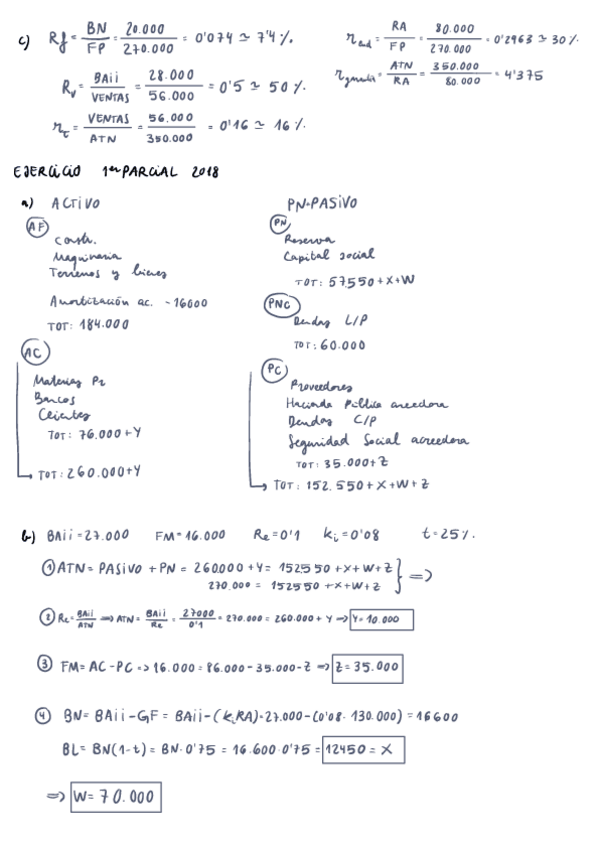 c) Rf = BN/FP = 20.000/270.000 = 0'074 ≃ 7'4 %.
Rv = BAii/VENTAS = 28.000/56.000 = 0'5 ≃ 50 %.
rt = VENTAS/ATN = 56.000/350.000 = 0'16 ≃ 16 %.
r end = RA/FP = 80.000/270.000 = 0'2963 ≃ 30 %
r garantía = ATN/RA = 350.000/80.000 = 4'375
EJERCICIO 1er PARCIAL 2018
a) ACTIVO
AF
Const.
Maquinaria
Terrenos y bienes
Amortización ac. -16000
TOT: 184.000
AC
Materias Pr
Bancos
Clientes
TOT: 76.000+Y
TOT: 260.000+Y
PN+PASIVO
PN
Reserva
Capital social
TOT: 57550+X+W
PNC
Deudas L/P
TOT: 60.000
PC
Proveedores
Hacienda Pública acreedora
Deudas C/P
Seguridad Social acreedora
TOT: 35.000+Z
TOT: 152.550+X+W+Z
b) BAii=27.000 FM=16.000 Re=0'1 ki=0'08 t=25%.
① ATN = PASIVO + PN = 260.000 + Y = 152550+X+W+Z
270.000 = 152550+X+W+Z } =>
② Re = BAii/ATN => ATN = BAii/Re = 27000/0'1 = 270.000 = 260.000 + Y => Y=10.000
③ FM = AC - PC => 16.000 = 86.000-35.000-Z => Z=35.000
④ BN = BAii-GF = BAii-(ki·RA)=27.000-(0'08·130.000)=16600
BL = BN(1-t) = BN·0'75 = 16.600·0'75 = 12450 = X
=> W=70.000